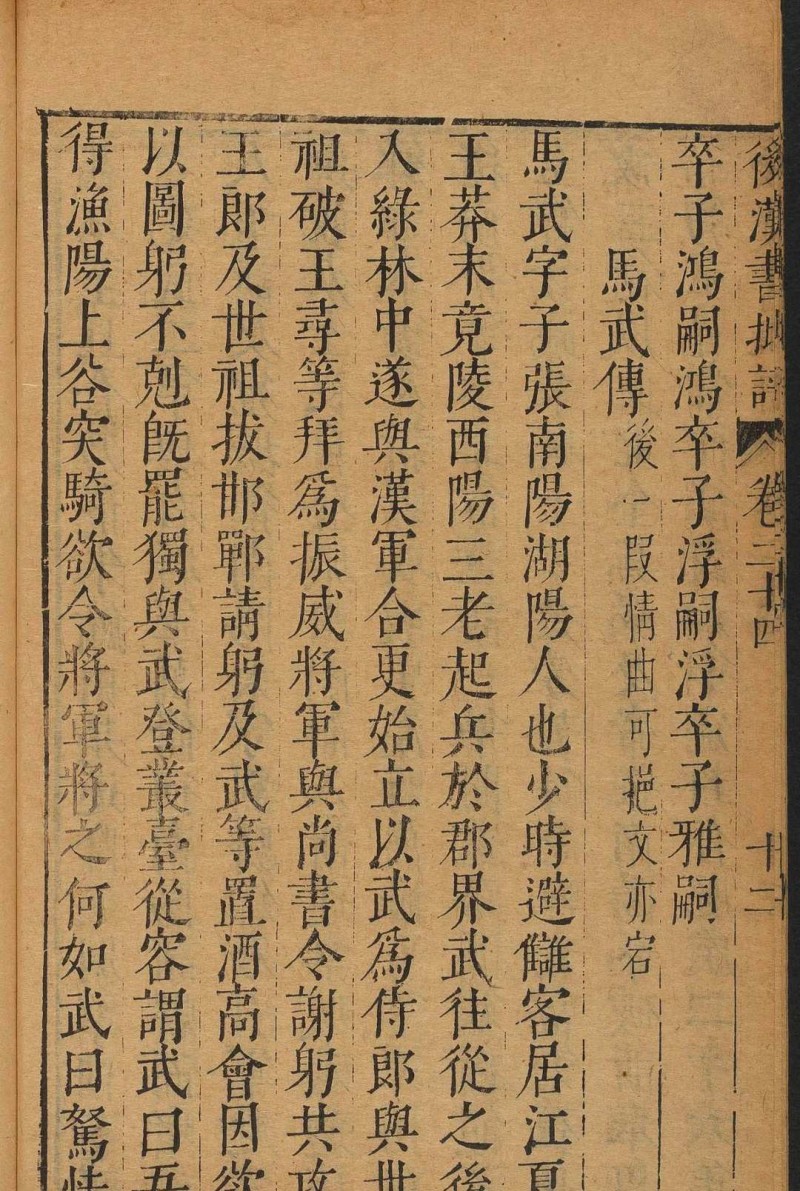 後漢書批評 卷三十四 十二
卒子鴻嗣鴻卒子浮嗣浮卒子雅嗣
馬武傳 後一段情曲可挹文亦宕
馬武字子張南陽湖陽人也少時避讎客居江夏
王莽末竟陵西陽三老起兵於郡界武往從之後
入綠林中遂與漢軍合更始立以武爲侍郎與世
祖破王尋等拜爲振威將軍與尚書令謝躬共攻
王郎及世祖拔邯鄲請躬及武等置酒高會因欲
以圖躬不剋旣罷獨與武登叢臺從容謂武曰吾
得漁陽上谷突騎欲令將軍將之何如武曰駑怯